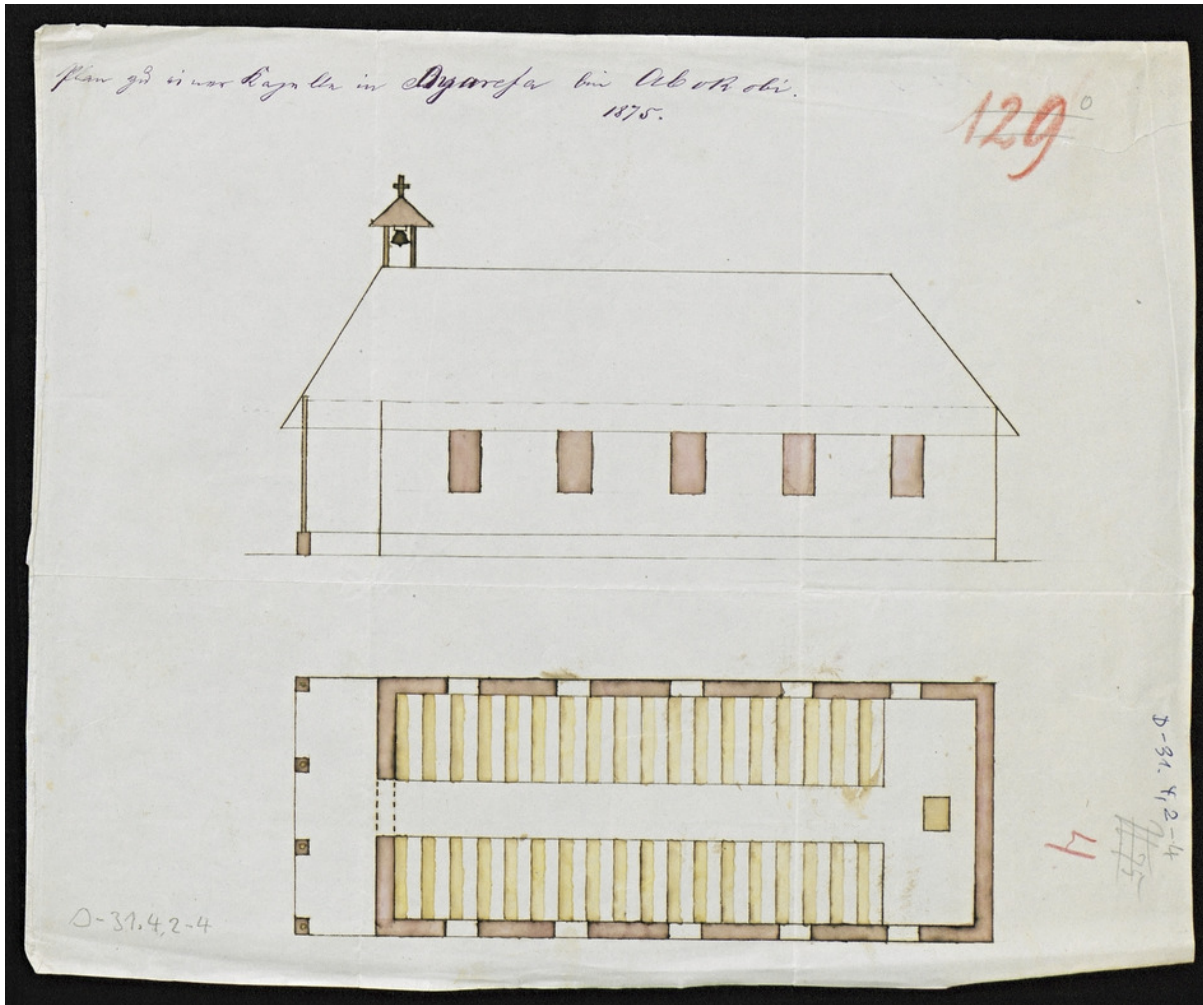 Plan zu einer Kapelle in Ayarefa bei Abokobi.
1875.
129
0
D-31.4,2-4
4
D-31.4,2-4